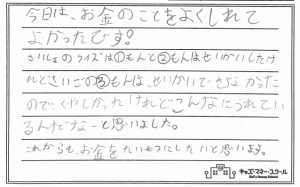 今日は、お金のことをよくしれて
よかったです!
さいしょのクイズは①もんと②もんはせいかいしたけ
れどさいごの③もんは、せいかいできなかった
ので、くやしかったけれどこんなにうれてい
るんだなーと思いました。
これからも、お金をたいせつにしたいと思います。
キッズ・マネー・スクール
Kid's Money School